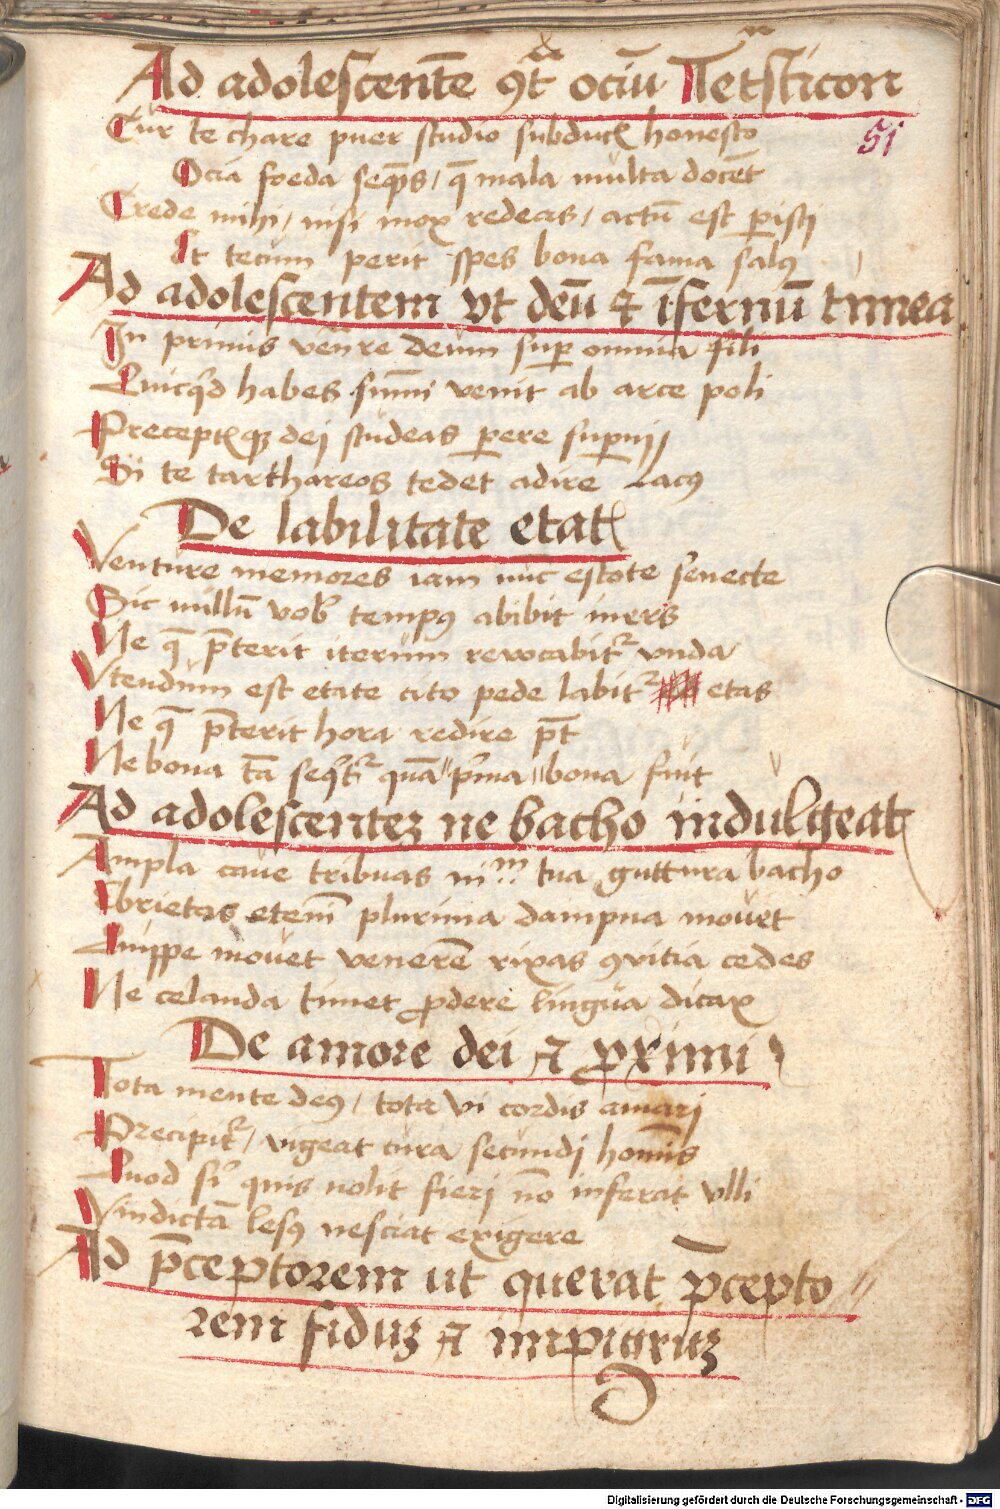 Ad adolescentē ꝯtͣ ociū Tetsticon
51
Cur te chare puer studio subducꝭ honesto
Ocia foeda seqͥs / q̄ mala multa docēt
Crede mihi / nisi mox redeas / actū est ꝑistj
Et tecum perit spes bona fama salꝯ
Ad adolescentem vt deū ⁊ īfernū timea
In primis venr̄e deum suꝑ omnia fili
Quicqͥd habes sūmi venit ab arce poli
Preceptꝭqꝫ dej studeas ꝑere suꝑnij /
Si te tarthareos tedet adire Lacꝯ
De labilitate etatꝭ
Venture memores iam nūc estote senecte
Sic nullū vobꝭ tempꝯ abibit iners
Ne q̄ p̄terit iterum revocabitᷣ vnda
Vtendum est etate cito pede labitᷣ etas
Ne q̄ p̄terit hora redire p̄t
Ne bona tā seqͥtᷣ quā pͥma bona fuit
Ad adolescentez ne bacho indulgeatꝭ
Ampla cave tribuas tua guttura bacho
Ebrietas etenī plurima dampna movet
Quippe movet venerē rixas ꝯvitia cedes
Ne celanda timet ꝓdere lingua dicax
De amore dei ⁊ ꝓximi
Tota mente deꝯ / tota vi cordis amarj
Precipitᷣ / vigeat cura secundj homīs
Quod sͥ quis nolit fierj nō inferat vlli
Vindictā lesꝯ nesciat exigere
Ad p̄ceptorem ut querat p̄cepto //
rem fiduz ⁊ impigruz
Digitalisierung gefördert durch die Deutsche Forschungsgemeinschaft - DFG